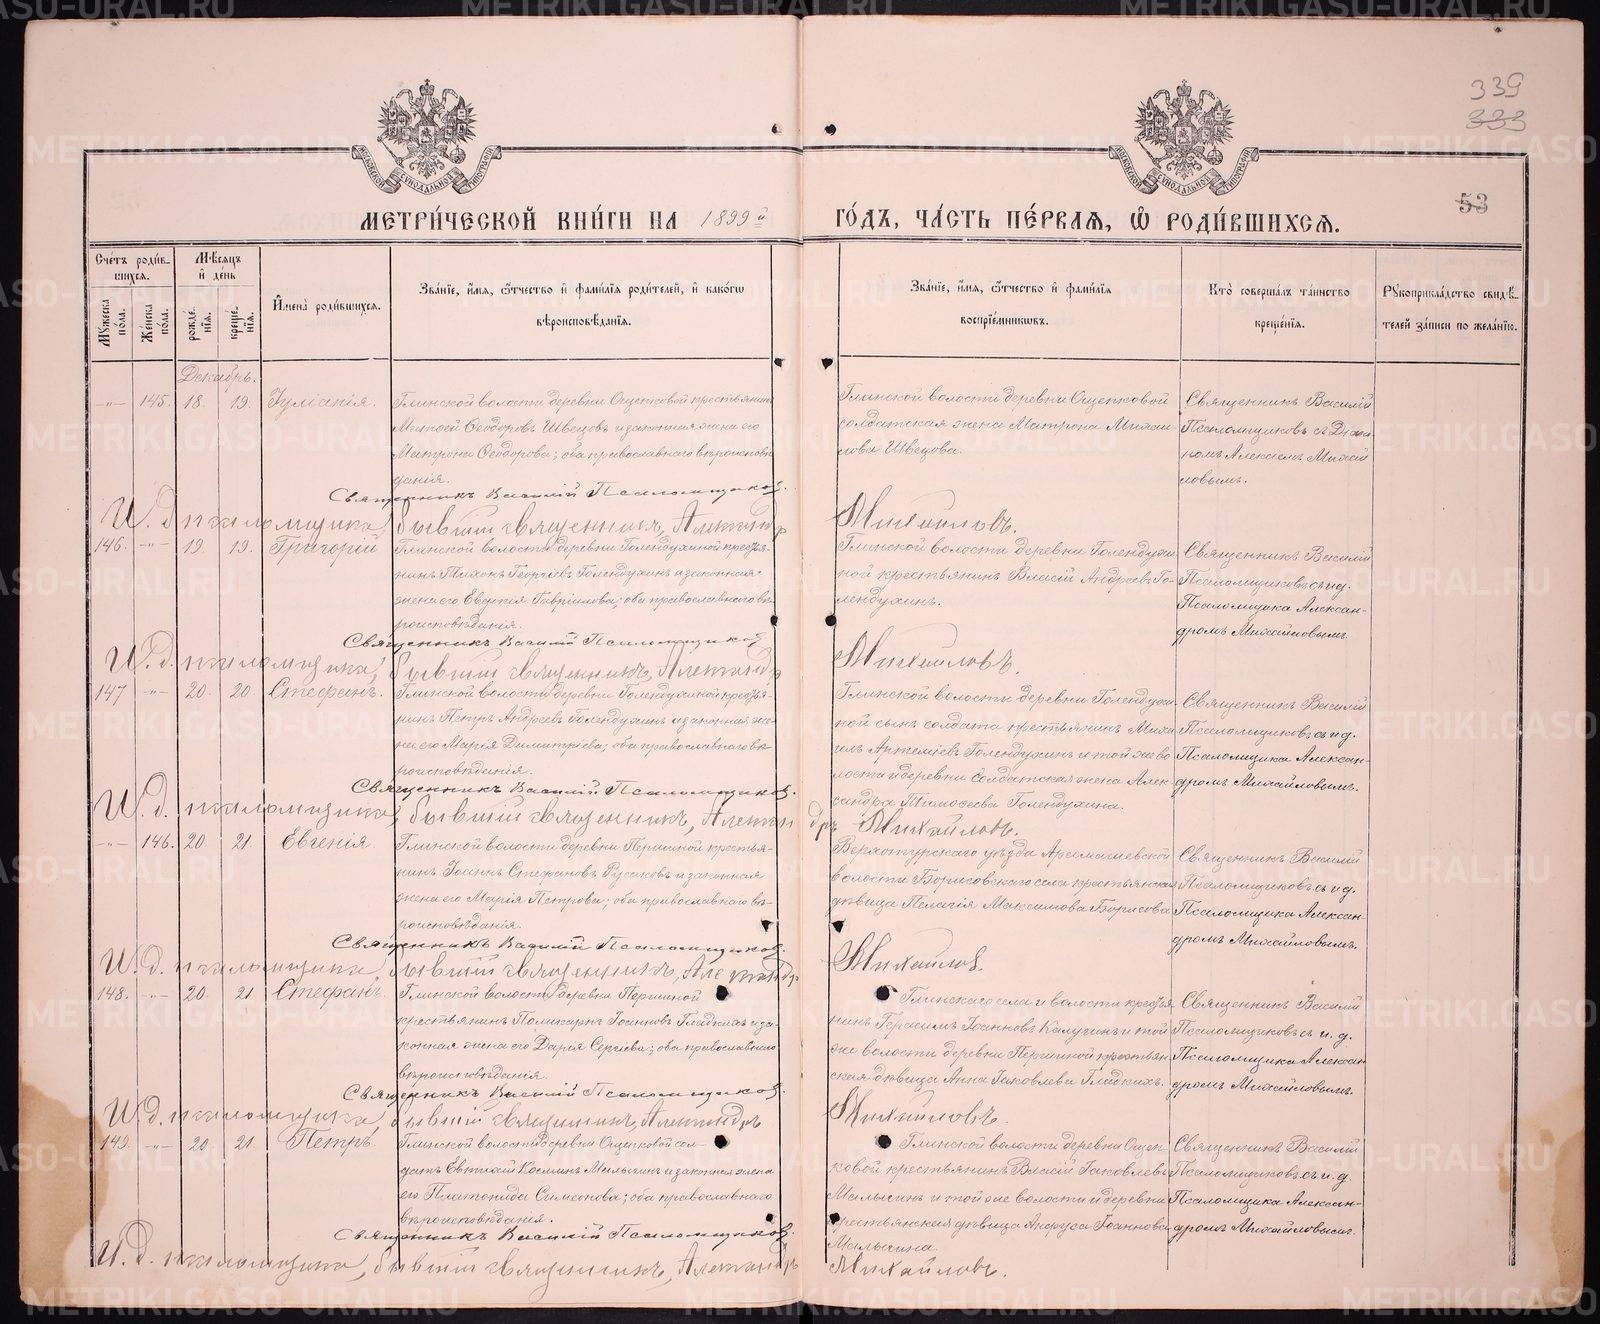 339
333
53
МЕТРИ́ЧЕСКОЙ КНИ́ГИ НА 1899й ГО́ДЪ, ЧА́СТЬ ПЕ́РВАЯ, Ѡ҆ РОДИ́ВШИХСЯ.
Сче́тъ роди́вшихся.
Мꙋ́жеска по́ла.
Же́нска по́ла.
Мѣ́сяцъ и҆ де́нь
рожде́нїѧ.
креще́нїѧ.
И҆мена̀ роди́вшихся.
Зва́нїе, и҆́мя, ѻ҆́тчество и҆ фами́лїя роди́телей, и҆ како́гѡ вѣроисповѣ́данїя.
Зва́нїе, и҆́мя, ѻ҆́тчество и҆ фами́лїя воспрїе́мниковъ.
Кто̀ соверша́лъ та́инство креще́нїя.
Рꙋкоприкла́дство свидѣ́телей за́писи по жела́нїю.
Декабрь.
-"- 145. 18. 19. Іуліанія.
Глинской волости деревни Ощепковой крестьянинъ
Матѳей Ѳеодоровъ Швецовъ и законная жена его
Матрона Ѳеодорова; оба православнаго вѣроисповѣ
данія.
Глинской волости деревни Ощепковой
солдатская жена Матрона Михаи-
лова Швецова.
Священникъ Василій
Псаломщиковъ съ Діако
номъ Алексѣемъ Михай
ловымъ.
Священникъ Василій Псаломщиковъ.
И. д. псаломщика, бывшій священникъ, Александръ Михайловъ.
146. -"- 19. 19. Григорій
Глинской волости деревни Голендухиной кресть-
янинъ Тихонъ Георгіевъ Голендухинъ и законная
жена его Евгенія Гавріилова; оба православнаго вѣ-
роисповѣданія.
Глинской волости деревни Голендухи
ной крестьянинъ Власій Андреевъ Го-
лендухинъ.
Священникъ Василій
Псаломщиковъ съ и.д.
Псаломщика Алексан-
дромъ Михайловымъ.
Священникъ Василій Псаломщиковъ
И. д. псаломщика, бывшій священникъ, Александръ Михайловъ.
147 -"- 20. 20. Стефанъ.
Глинской волости деревни Голендухиной кресть-
янинъ Петръ Андреевъ Голендухинъ и законная же-
на его Марія Димитріева; оба православнаго вѣ-
роисповѣданія.
Глинской волости деревни Голендухи
ной сынъ солдата крестьянинъ Миха-
илъ Артеміевъ Голендухинъ и той же во
лости и деревни солдатская жена Алек-
сандра Тимоѳеева Голендухина.
Священникъ Василій
Псаломщиковъ съ и.д.
Псаломщика Алексан-
дромъ Михайловымъ.
Священникъ Василій Псаломщиковъ.
И. д. псаломщика, бывшій священникъ, Александръ Михайловъ.
-"- 146. 20 21. Евгенія.
Глинской волости деревни Першиной крестья-
нинъ Іоаннъ Стефановъ Русаковъ и законная
жена его Марія Петрова; оба православнаго вѣ-
роисповѣданія.
Верхотурскаго уѣзда Арамашевской
волости Борисовскаго села крестьянская
дѣвица Пелагія Максимова Борисова
Священникъ Василій
Псаломщиковъ съ и д.
Псаломщика Алексан-
дромъ Михайловымъ.
Священникъ Василій Псаломщиковъ.
И. д. псаломщика, бывшій священникъ, Александръ Михайлов.
148. -"- 20. 21 Стефанъ.
Глинской волости деревни Першиной
крестьянинъ Поликарпъ Іоанновъ Гладкихъ и за-
конная жена его Дарія Сергіева; оба православнаго
вѣроисповѣданія.
Глинскаго села и волости крестья
нинъ Герасимъ Іоанновъ Калугинъ и той
же волости деревни Першиной крестьян
ская дѣвица Анна Іаковлева Гладкихъ.
Священникъ Василій
Псаломщиковъ съ и. д.
Псаломщика Алексан-
дромъ Михайловымъ.
Священникъ Василій Псаломщиковъ.
И. д. псаломщика, бывшій священникъ, Александръ Михайловъ.
149. -"- 20. 21. Петръ.
Глинской волости деревни Ощепковой сол-
датъ Евтихій Косминъ Малыгинъ и законная жена
его Платонида Симеонова; оба православнаго
вѣроисповѣданія.
Глинской волости деревни Ощеп-
ковой крестьянинъ Власій Іаковлевъ
Малыгинъ и той же волости и деревни
крестьянская дѣвица Анфуса Іоаннова
Малыгина.
Священникъ Василій
Псаломщиковъ съ и. д.
Псаломщика Алексан-
дромъ Михайловымъ.
Священникъ Василій Псаломщиковъ.
И. д. псаломщика, бывшій священникъ, Александръ Михайловъ.
METRIKI.GASO-URAL.RU